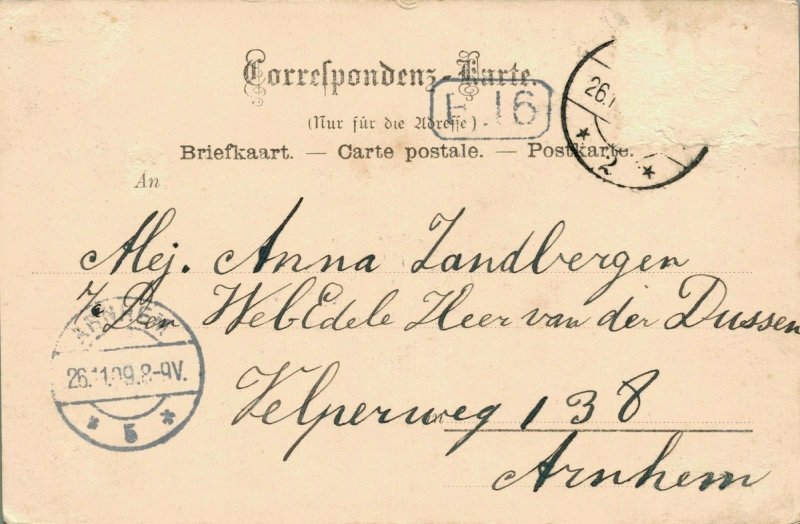 Correspondenz-Karte.
F 16
(Nur für die Adresse)
26.1
2
Briefkaart. — Carte postale. — Postkarte.
An
Mej. Anna Zandbergen
Den WelEdele Heer van der Dussen
ARNHEM
26.11.09.8-9V.
5
Velperweg 138
Arnhem